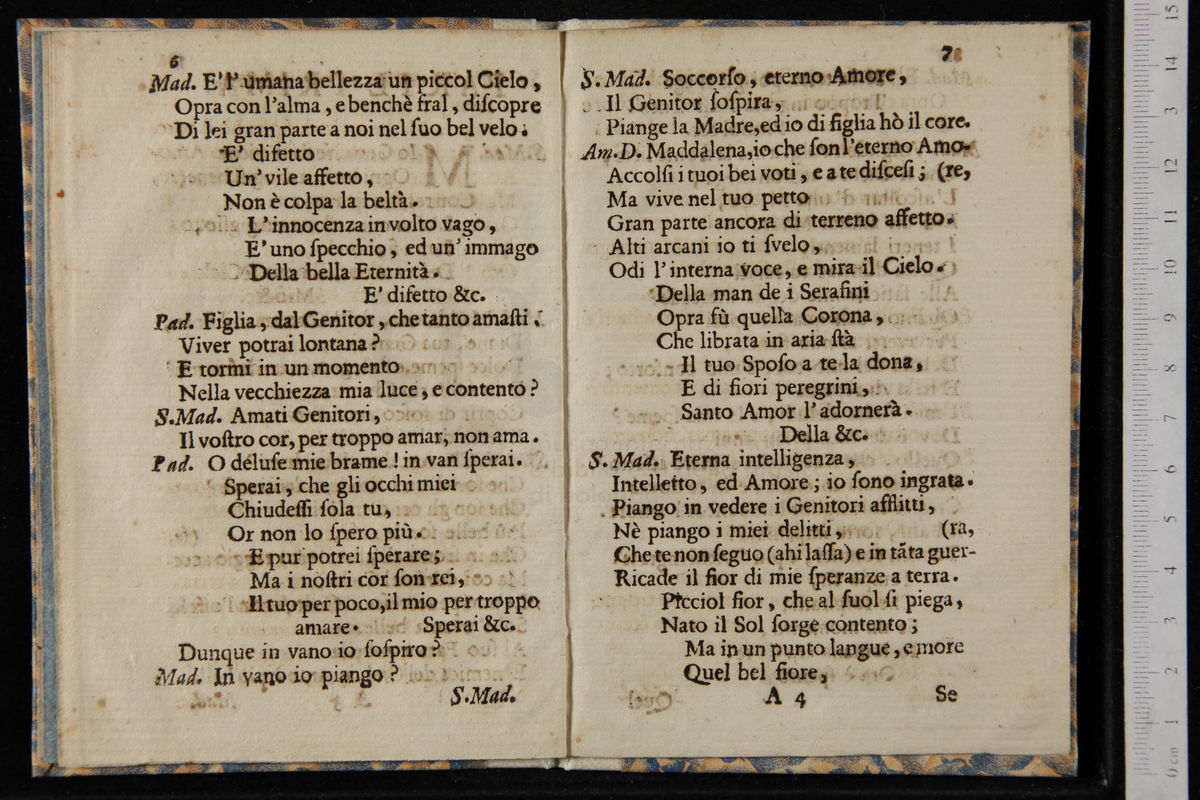 6
Mad. E'l' umana bellezza un piccol Cielo,
Opra con l'alma, e benchè fral, diſcopre
Di lei gran parte a noi nel ſuo bel velo.
E' difetto
Un' vile affetto,
Non è colpa la beltà.
L' innocenza in volto vago,
E' uno ſpecchio, ed un' immago
Della bella Eternità.
E' difetto &c.
Pad. Figlia, dal Genitor, che tanto amaſti,
Viver potrai lontana?
E tormi in un momento
Nella vecchiezza mia luce, e contento?
S. Mad. Amati Genitori,
Il voſtro cor, per troppo amar, non ama.
Pad. O deluſe mie brame! in van ſperai.
Sperai, che gli occhi miei
Chiudeſſi ſola tu,
Or non lo ſpero più.
E pur potrei ſperare;
Ma i noſtri cor ſon rei,
Il tuo per poco, il mio per troppo
amare. Sperai &c.
Dunque in vano io ſoſpiro?
Mad. In vano io piango?
S. Mad.
7
S. Mad. Soccorſo, eterno Amore,
Il Genitor ſoſpira,
Piange la Madre, ed io di figlia hò il core.
Am. D. Maddalena, io che ſon l'eterno Amo-
Accolſi i tuoi bei voti, e a te diſceſi; (re,
Ma vive nel tuo petto
Gran parte ancora di terreno affetto.
Alti arcani io ti ſvelo,
Odi l'interna voce, e mira il Cielo.
Della man de i Serafini
Opra fù quella Corona,
Che librata in aria ſtà
Il tuo Spoſo a te la dona,
E di fiori peregrini,
Santo Amor l'adornerà.
Della &c.
S. Mad. Eterna intelligenza,
Intelletto, ed Amore; io ſono ingrata.
Piango in vedere i Genitori afflitti,
Nè piango i miei delitti, (ra,
Che te non ſeguo (ahi laſſa) e in tãta guer-
Ricade il fior di mie ſperanze a terra.
Picciol fior, che al ſuol ſi piega,
Nato il Sol ſorge contento;
Ma in un punto langue, e more
Quel bel fiore,
A 4 Se
15
14
13
12
11
10
9
8
7
6
5
4
3
2
1
0 cm